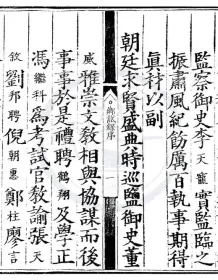 監察御史李天寵實監臨之
振肅風紀飭厲百執事期得
眞材以副
朝廷求賢盛典時巡鹽御史董
威雅崇文教相與協謀而後
事事於是禮聘鶴翔及學正
馮繼科爲考試官教諭張天
敘劉邦聘倪朝惠鄭柱廖言